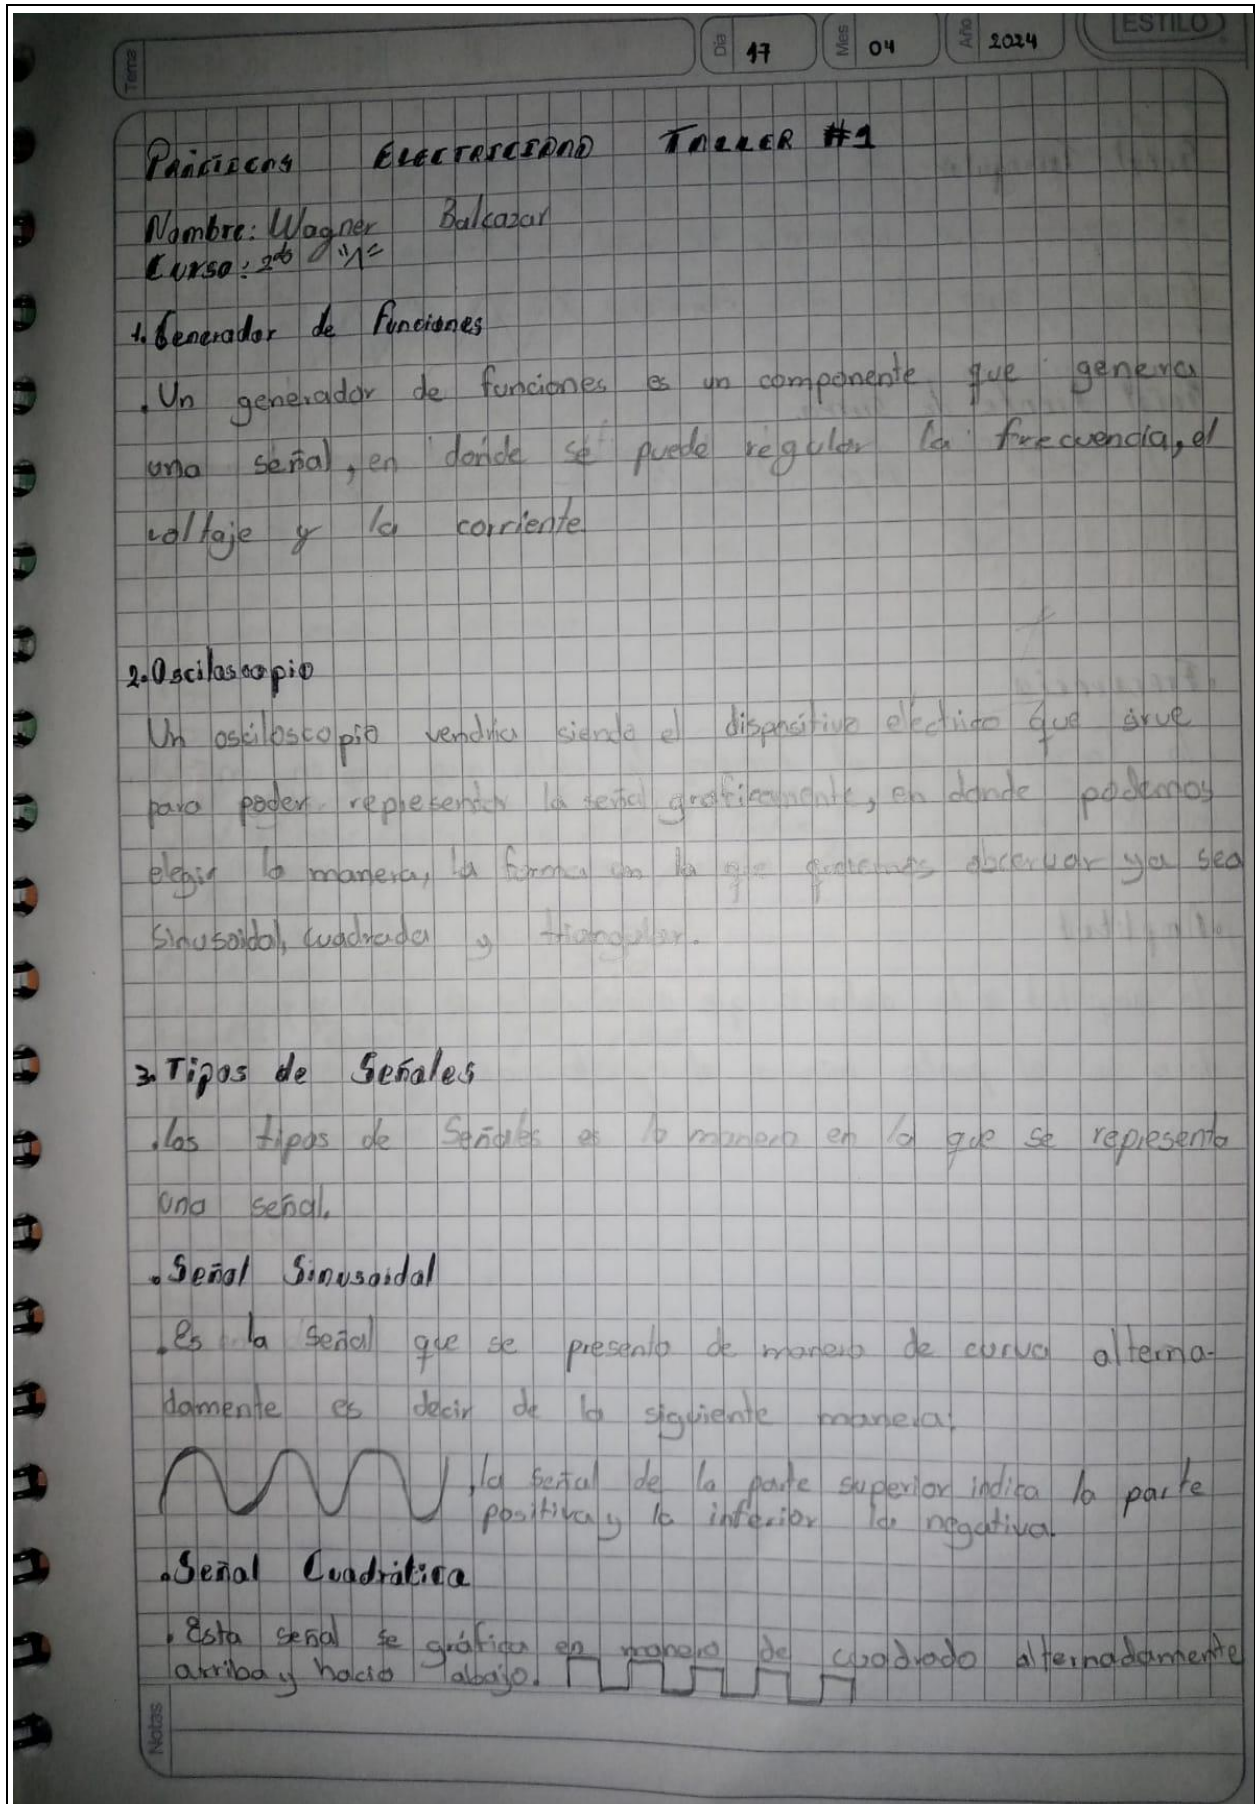 Tema
Día 17 Mes 04 Año 2024 ESTILO
Prácticas Electricidad Taller #1
Nombre: Wagner Balcazar
Curso: 2do
1. Generador de Funciones
. Un generador de funciones es un componente que genera
una señal, en donde se puede regular la frecuencia, el
voltaje y la corriente
2. Osciloscopio
Un osciloscopio vendria siendo el dispositivo electrico que sirve
para poder representar la señal graficamente, en donde podemos
elegir la manera, la forma en la que queremos obcervar ya sea
sinusoidal, cuadrada y triangular.
3. Tipos de Señales
. Los tipos de Señales es la manera en la que se representa
una señal.
. Señal Sinusoidal
. es la señal que se presenta de manera de curva alterna-
damente es decir de la siguiente manera:
, la señal de la parte superior indica la parte
positiva y la inferior la negativa.
. Señal Cuadrática
. Esta señal se gráfica en manera de cuadrado alternadamente
arriba y hacia abajo.
Notas